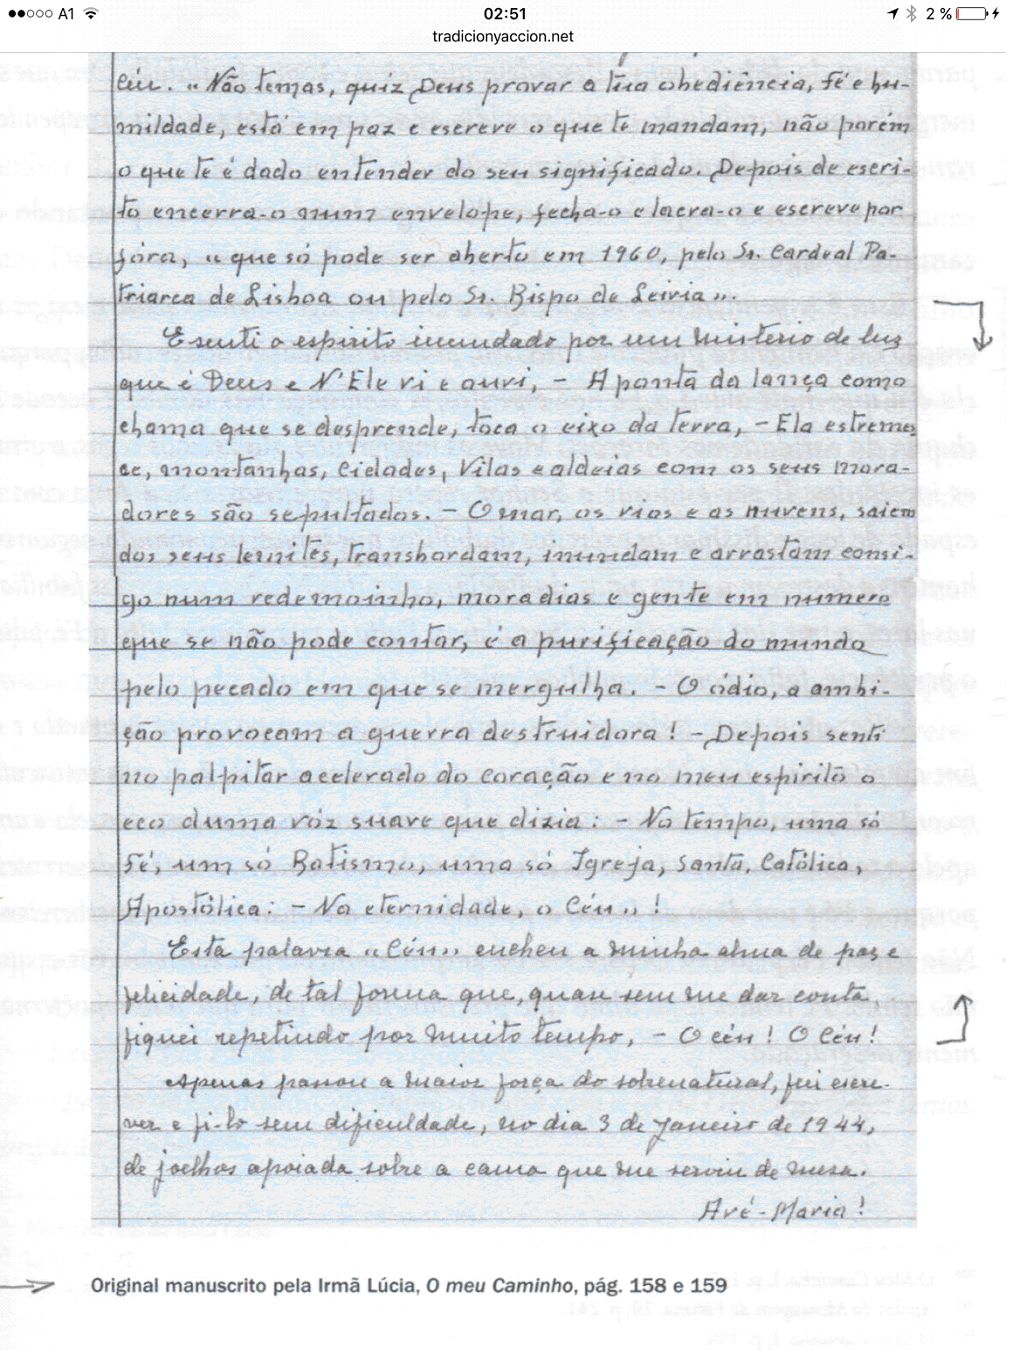 A1 02:51 2 %
tradicionyaccion.net
Céu. „Não temas, quiz Deus provar a tua obediência, fé e hu-
mildade, está em paz e escreve o que te mandam, não porém
o que te é dado entender do seu significado. Depois de escri-
to encerra-o num envelope, fecha-o e lacra-o e escreve por
fóra, „que só pode ser aberto em 1960, pelo Sr. Cardeal Pa-
triarca de Lisboa ou pelo Sr. Bispo de Leiria„.
E senti o espirito inundado por um misterio de luz
que é Deus e N'Ele vi e ouvi, – A ponta da lança como
chama que se desprende, toca o eixo da terra, – Ela estreme
ce, montanhas, Cidades, Vilas e aldeias com os seus mora-
dores são sepultados. – O mar, os rios e as nuvens, saiem
dos seus lemites, transbordam, inundam e arrastam consi-
go num redemoinho, moradias e gente em numero
que se não pode contar, é a purificação do mundo
pelo pecado em que se mergulha. – O ódio, a ambi-
ção provocam a guerra destruidora! – Depois senti
no palpitar acelerado do coração e no meu espirito o
eco duma vóz suave que dizia: – No tempo, uma só
Fé, um só Batismo, uma só Igreja, Santa, Católica,
Apostólica: – Na eternidade, o Céu„!
Esta palavra „Céu„ encheu a minha alma de paz e
felicidade, de tal forma que, quase sem me dar conta,
fiquei repetindo por muito tempo, – O céu! O Céu!
Apenas passou a maior força do sobrenatural, fui escre-
ver e fi-lo sem dificuldade, no dia 3 de Janeiro de 1944,
de joelhos apoiada sobre a cama que me serviu de mesa.
Avé-Maria!
Original manuscrito pela Irmã Lúcia, O meu Caminho, pág. 158 e 159